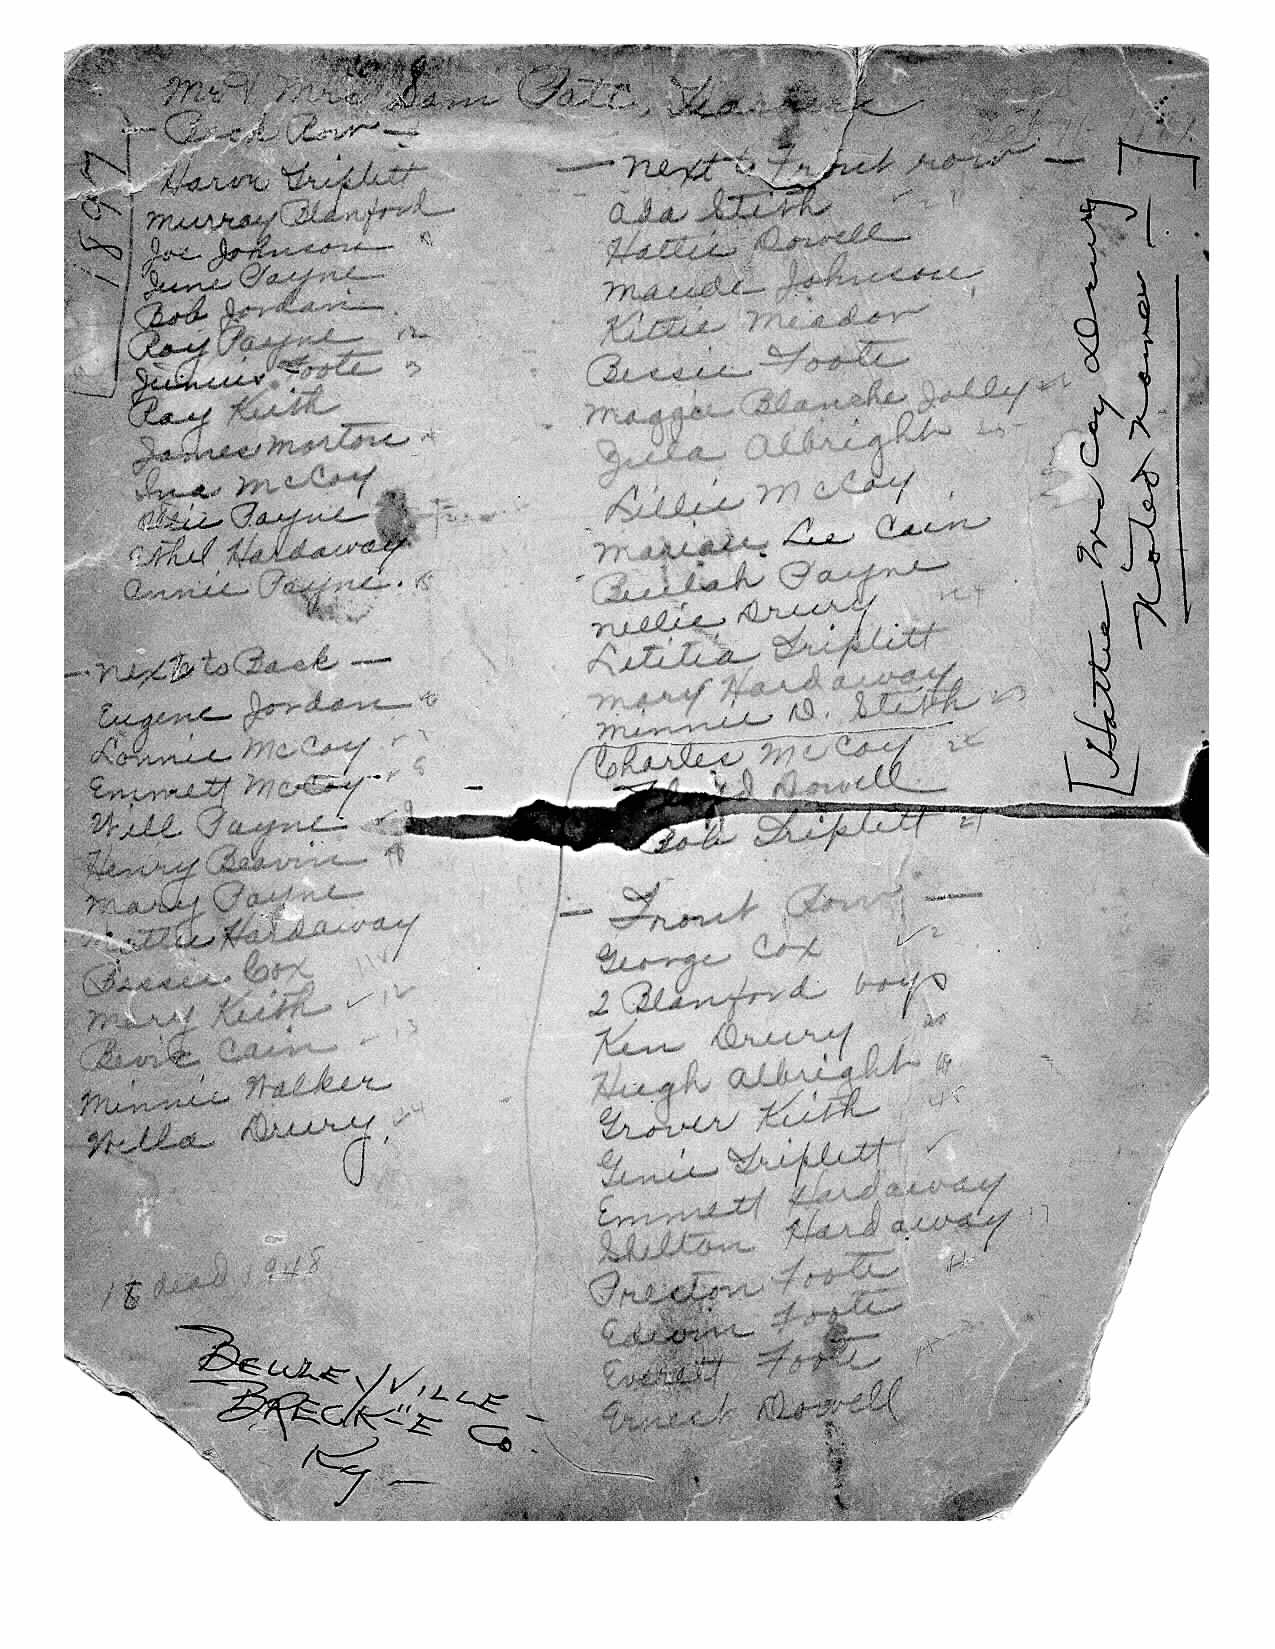 Mr & Mrs Sam Pate, Teachers
1897
— Back Row —
Haron Triplett
Murray Blanford
Joe Johnson
June Payne
Bob Jordan
Roy Payne 12
Junius Foote
Ray Keith
James Morton
Iva McCoy
Payne
Ethel Hardaway
Annie Payne.
— Next to Back —
Eugene Jordan
Lonnie McCoy
Emmett McCoy
Will Payne
Henry Beavin
Mary Payne
Mattie Hardaway
Bessie Cox
Mary Keith ✓ 12
Bevie Cain - 13
Minnie Walker
Willa Drury. 24
18 dead 1948
BEWLEYVILLE –
BRECK"E Co.
Ky –
— Next to Front row —
Ada Stith
Hattie Dowell
Maude Johnson
Kittie Meador
Bessie Foote
Maggie Blanche Jolly
Zula Albright
Lillie McCoy
Marian Lee Cain
Beulah Payne
Nellie Drury
Letitia Triplett
Mary Hardaway
Minnie D. Stith
Charles McCoy
Dowell
Bob Triplett 21
— Front Row —
George Cox ✓
2 Blanford boys
Ken Drury
Hugh Albright
Grover Keith
Genie Triplett ✓
Emmett Hardaway
Shelton Hardaway 17
Preston Foote
Edwin Foote
Everett Foote
Ernest Dowell
[Hattie McCoy Drury]
Notes Homer —